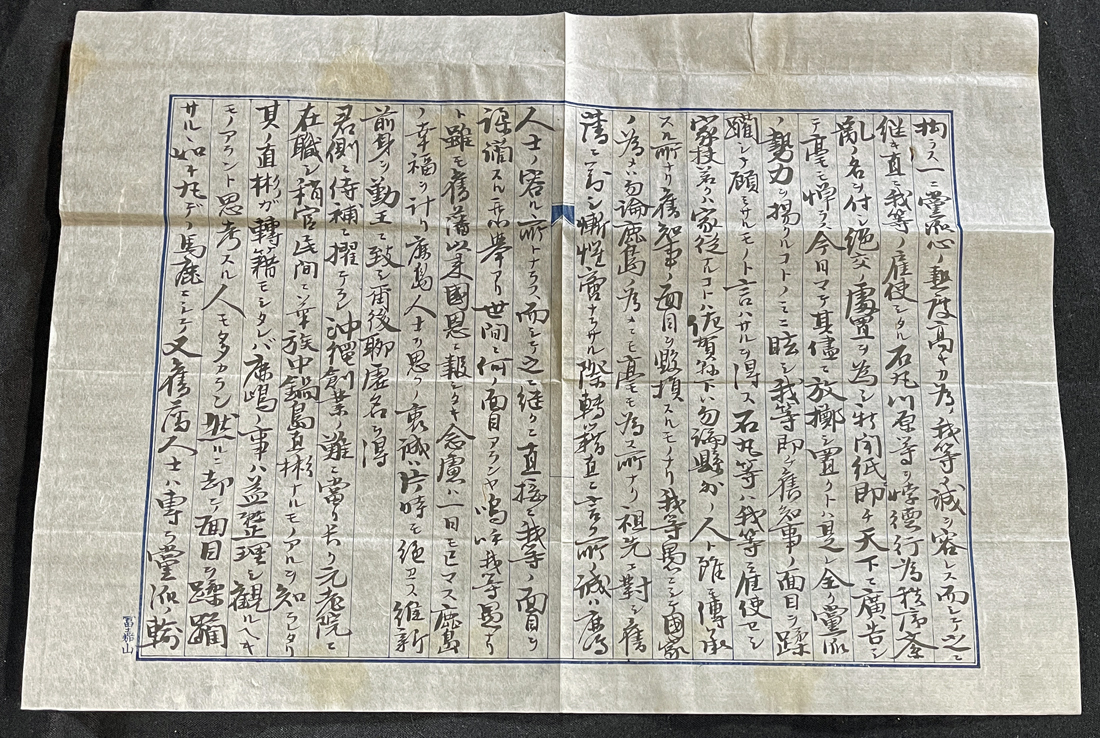 拘ラス一ニ党派心ノ熱度高キカ為メ我等ノ誠ヲ容レス而シテ之ニ
継キ直ニ我等ノ雇使シタル石丸川原等ヲ悖徳行為積
乱ノ名ヲ付シ絶交ノ処置ヲ為シ新聞紙即チ天下ニ広告シ
テ毫モ憚ラス今日マテ其儘ニ放擲シ置クトハ是レ全ク党派
ノ勢力ヲ揚クルコトノミニ眩シ我等即チ旧知事ノ面目ヲ蹂
躙シテ顧ミサルモノト言ハサルヲ得ス石丸等ハ我等ニ雇使セシ
家扶若クハ家従タルコトハ佐賀県下ハ勿論県外ノ人ト雖モ伝承
スル所ナリ旧知事ノ面目ヲ毀損スルモノナリ我等愚ニシテ国家
ノ為メハ勿論鹿島ノ為メニモ毫モ為ス所ナリ祖先ニ対シ旧
藩ニ対シ慚愧啻ナラサル際転籍直ニ言フ所ノ誠ハ鹿島
人士ノ容ル所トナラス而シテ之ニ継クニ直接ニ我等ノ面目ヲ
誣謗スルニ非挙アリ世間ニ何ノ面目アランヤ嗚呼我等愚ナリ
ト雖モ旧藩以来国恩ニ報シタキ念慮ハ一日モ已マス鹿島
ノ幸福ヲ計リ鹿島人士ヲ思フノ衷誠ハ片時モ絶エス維新
前身ヲ勤王ニ致シ爾後聊虚名ヲ得
君側ニ侍補ニ擢テラレ沖縄創業ノ難ニ当リ長ク元老院ニ
在職シ稍官民間ニ華族中鍋島直彬ナルモノアルヲ知ラタリ
其直彬カ転籍モシタレバ鹿嶋ノ事ハ益整理ヲ観ルヘキ
モノアラント思考スル人モ多カラン然ルニ却テ面目ヲ蹂躙
サルヽ如キ丸デノ馬鹿ニシテ又旧藩人士ハ専ラ党派ノ輪